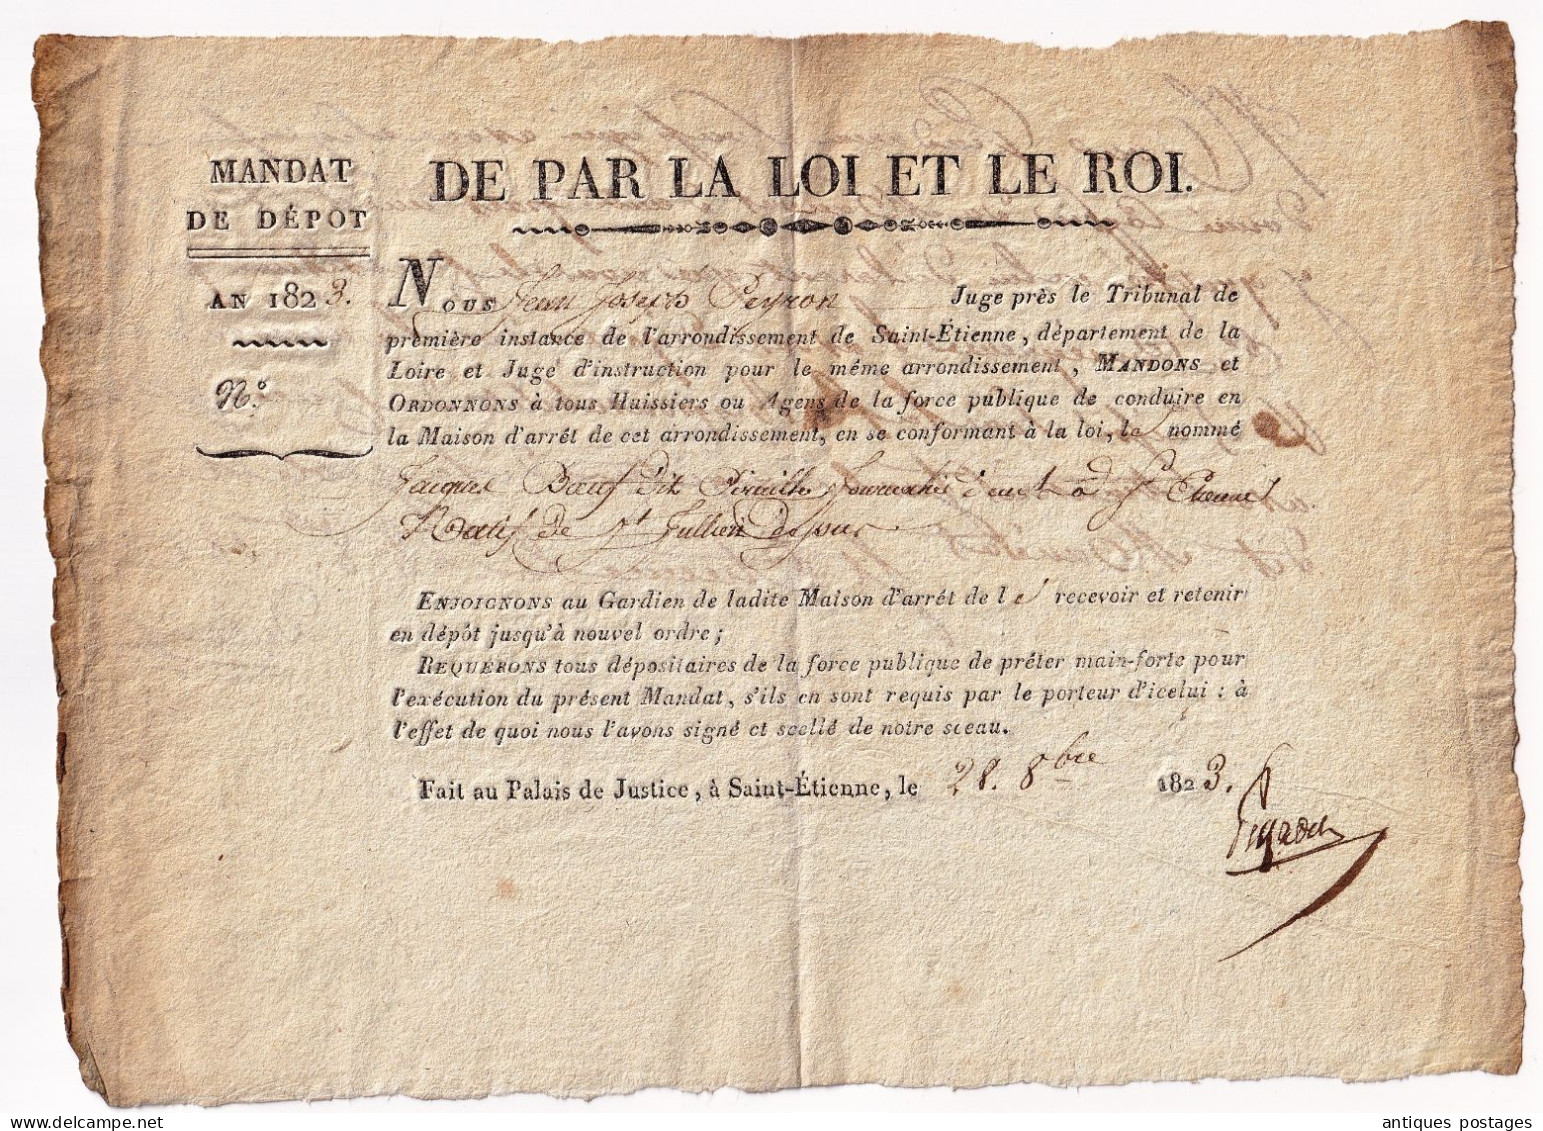 MANDAT
DE DÉPOT
AN 1823.
N.º
DE PAR LA LOI ET LE ROI.
NOUS Jean Joseph Peyron Juge près le Tribunal de
première instance de l'arrondissement de Saint-Étienne, département de la
Loire et Juge d'instruction pour le même arrondissement, MANDONS et
ORDONNONS à tous Huissiers ou Agens de la force publique de conduire en
la Maison d'arrêt de cet arrondissement, en se conformant à la loi, le nommé
Jacques Bœuf dit à St Etienne
Natif de St Jullien
ENJOIGNONS au Gardien de ladite Maison d'arrêt de le recevoir et retenir
en dépôt jusqu'à nouvel ordre;
REQUÉRONS tous dépositaires de la force publique de prêter main-forte pour
l'exécution du présent Mandat, s'ils en sont requis par le porteur d'icelui : à
l'effet de quoi nous l'avons signé et scellé de notre sceau.
Fait au Palais de Justice, à Saint-Étienne, le 28. 8bre 1823.
Peyron
antiques postages